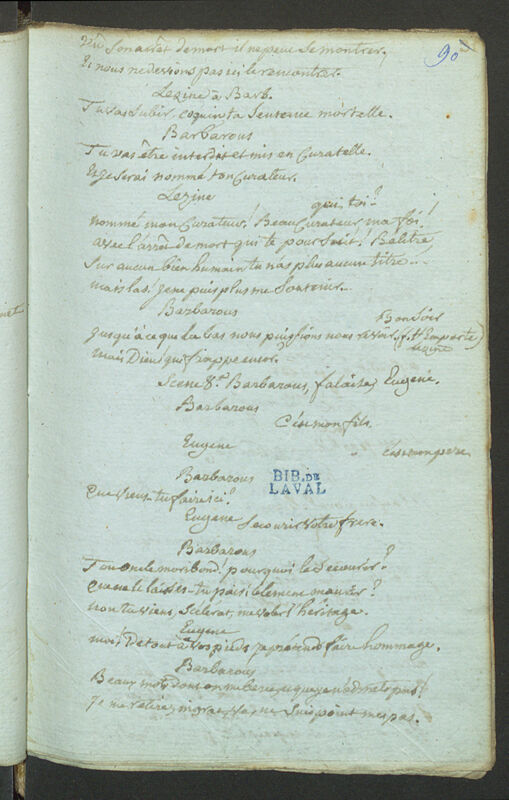 90
Vu Son arrêt de mort il ne peut Se montrer,
Et nous ne devions pas ici le rencontrer.
Lezine à Barb.
Tu vas Subir, coquin ta Sentence mortelle.
Barbarous
Tu vas être interdit et mis en Curatelle.
Et je Serai nommé ton Curateur.
Lezine
qui, toi?
nommé mon Curateur! Beau Curateur, ma foi!
avec l'arrêt de mort qui te poursuit! Belitre
Sur aucun bien humain tu n'as plus aucun titre...
mais las. je ne puis plus me Soutenir.
Barbarous
Bon Soir
jusqu'à ce que la bas nous puissions nous revoir. (on Emporte
Lezine)
mais Dieu! qui frappe encor?
Scene 8.e Barbarous, falaise, Eugene.
Barbarous
C'est mon fils.
Eugene
C'est mon pere
Barbarous
Que viens-tu faire ici?
Eugene
Secourir votre frere.
Barbarous
Ton oncle moribond! pourquoi le Secourir?
Que ne le laisses-tu paisiblement mourir?
non tu viens, Scélérat, me voler l'héritage.
Eugene
moi, De tout à vos pieds je prétends faire hommage.
Barbarous
Beaux mots dont on me berce, et que je n'admets pas!
je me retire, ingrat, va, ne Suis point mes pas.
BIB. DE
LAVAL